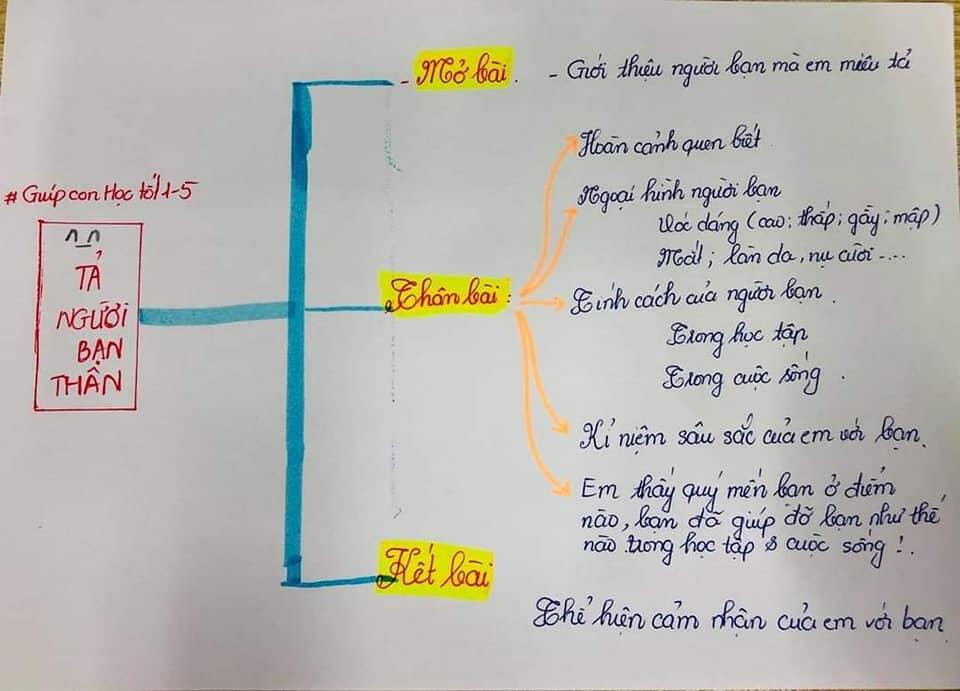 # Giúp con Học tốt 1-5
TẢ
NGƯỜI
BẠN
THÂN
- Mở bài.
- Giới thiệu người bạn mà em miêu tả
Thân bài:
Hoàn cảnh quen biết
Ngoại hình người bạn
Vóc dáng (cao; thấp; gầy; mập)
Mắt; làn da, nụ cười ....
Tính cách của người bạn.
Trong học tập
Trong cuộc sống.
Kỉ niệm sâu sắc của em với bạn.
Em thấy quý mến bạn ở điểm
nào, bạn đã giúp đỡ bạn như thế
nào trong học tập & cuộc sống!.
Kết bài
Thể hiện cảm nhận của em với bạn